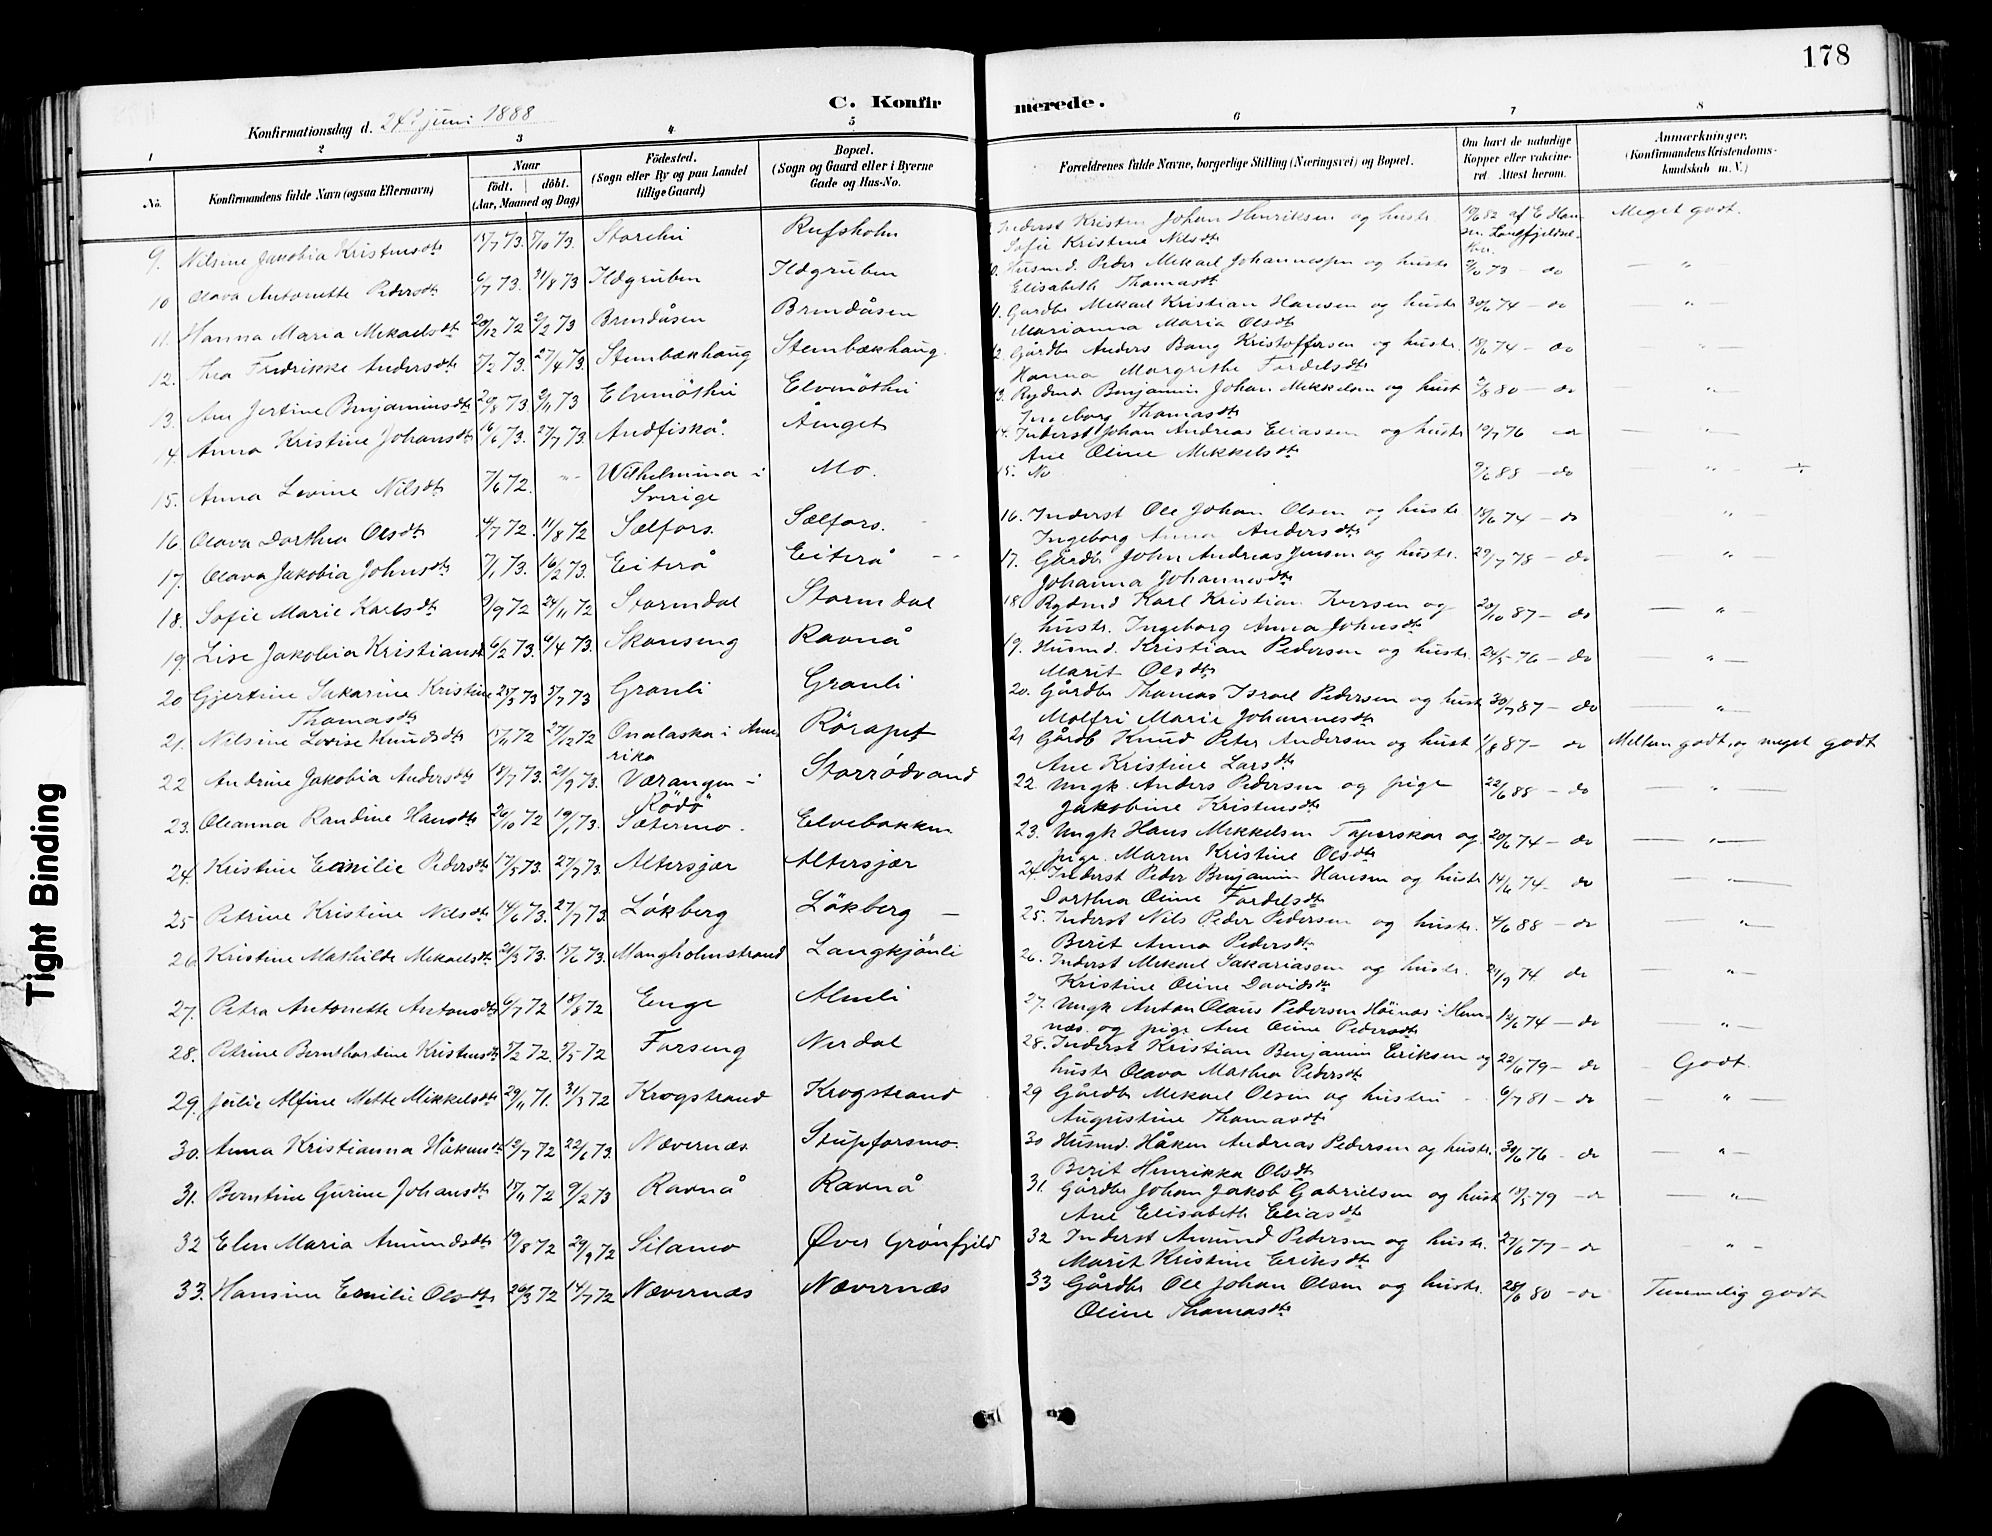 178
C. Konfir merede.
Konfirmationsdag d. 24de juni 1888
1 2 3 4 5 6 7 8
No. Konfirmandens fulde Navn (ogsaa Efternavn) Naar födt. döbt. (Aar, Maaned og Dag) Födested. (Sogn eller By og paa Landet tillige Gaard) Bopæl. (Sogn og Gaard eller i Byerne Gade og Hus-No. Forældrenes fulde Navne, borgerlige Stilling (Næringsvei) og Bopæl. Om havt de naturlige Kopper eller vakcineret. Attest herom. Anmærkninger. (Konfirmandens Kristendomskundskab m.V.)
9. Nilsine Jakobia Kristensdtr 15/7 73. 5/10 73. Storehei Rufsholm Inderst Kristen Johan Henriksen og hustr. 19/6 82 af E. Han- Meget godt.
Sofie Kristine Nilsdtr sen
10 Olava Antonette Pedersdtr 6/7 73. 31/8 73 Ildgruben Ildgruben 10. Husmd. Peder Mikael Johannessen og hustr 73 - do — " —
Elisabeth Thomasdtr
11. Hanna Maria Mekaelsdtr 29/12 72 2/2 73 Brendåsen Brendåsen 11. Gårdbr Mekael Kristian Hansen og hustr 30/6 74 - do — " —
Marianna Maria Olsdtr
12. Thea Fredrikke Andersdtr 5/2 73. 27/4 73. Stenbækhaug Stenbækhaug. 12. Gårdbr Anders Bang Kristoffersen og hustr. 18/6 74 - do
Hanna Margrethe Fordelsdtr
13. Ane Jertine Benjaminsdtr 20/8 73. 2/11 73 Elvemöthei Elvemöthei 13. Rydmd Benjamin Johan Mikkelsen og hust 5/8 80 - do "
Ingeborg Thomasdtr
14. Anna Kristine Johansdtr 16/6 73. 27/7 73. Andfiskå. Ånget 14. Inderst Johan Andreas Eliassen og hustr 19/7 76 - do — " —
Ane Oline Mikkelsdtr
15. Anna Levine Nilsdtr 7/6 72. - " - Wilhelmina i Sverige Mo. 15. No 9/6 88 - do — " — ÷
16. Olava Dorthea Olsdtr 4/7 72. 11/8 72 Selfors. Selfors. 16. Inderst Ole Johan Olsen og hustr 18/6 74 - do — " —
Ingeborg Anna Andersdtr
17. Olava Jakobia Johnsdtr 7/1 73. 16/2 73. Eiterå Eiterå 17. Gårdbr John Andreas Jensen og hustr. 29/7 78 - do "
Johanna Johannesdtr
18. Sofie Marie Karlsdtr 9/9 72 24/11 72 Stormdal Stormdal 18. Rydmd Karl Kristian Iversen og 20/10 87 - do — " —
hustr. Ingeborg Anna Johnsdtr
19. Lise Jakobia Kristiansdtr 6/2 73. 6/4 73. Skonseng Ravnå 19. Husmd. Kristian Pedersen og hustr. 24/5 76 - do " —
Marit Olsdtr
20 Gjertine Sakarine Kristine 25/3 73 5/7 73 Granli Granli 20. Gårdbr Thomas Israel Pedersen og hustr 30/7 87 - do "
Thomasdtr Molfri Marie Johannesdtr
21. Nilsine Lovise Knudsdtr 15/11 72 27/12 72 Onalaska i Amerika Röraget 21 Gårdb Knud Peter Andersen og hust 1/8 87 - do Mellem godt og meget godt
Ane Kristine Larsdtr
22 Andrine Jakobia Andersdtr 18/7 73. 21/9 73. Værangen i Rödö Storrödvand 22. Ungk. Anders Pedersen og pige 22/6 88 - do — " —
Jakobine Kristensdtr
23. Oleanna Randine Hansdtr 20/10 72 19/1 73. Sætermo. Elvebakken 23. Ungk Hans Mikkelsen Taperskar og 20/6 74 - do — " —
pige Maren Kristine Olsdtr
24. Kristine Emilie Pedersdtr 17/5 73. 27/7 73. Altersjær Altersjær 24. Inderst Peder Benjamin Hansen og hustr 14/6 74 - do — " —
Dorthea Oline Fordelsdtr
25 Petrine Kristine Nilsdtr 14/6 73. 27/7 73. Lökberg Lökberg — 25. Inderst Nils Peder Pedersen og hustr. 4/6 88 - do "
Berit Anna Pedersdtr
26. Kristine Mathilde Mekaelsdtr 21/3 73. 15/6 73. Mangholmstrand Langkjönli 26. Inderst Mekael Sakariassen og hustr. 21/9 74 do — " —
Kristine Oline Davidsdtr
27. Petra Antonette Antonsdtr 6/7 72 18/8 72 Enge Almli 27. Ungk Anton Olaus Pedersen Höinæs i Hem- 12/6 74 - do — " —
næs. og pige Ane Oline Pedersdtr
28. Petrine Bernhardine Kristensdtr 5/2 72. 5/5 72 Forseng Nerdal 28. Inderst Kristian Benjamin Eriksen og 22/6 79 - do - Godt.
hustr Olava Mathea Pedersdtr
29. Julie Alfine Mette Mikkelsdtr 29/11 71. 31/3 72 Krogstrand Krogstrand 29 Gårdbr Mekael Olsen og hustru 6/7 81 - do — " —
Augustine Thomasdtr
30. Anna Kristianna Håkensdtr 12/7 72 22/6 73. Nævernæs Stupforsmo. 30 Husmd. Håken Andreas Pedersen og hustr. 30/6 76 - do — " —
Berit Henrikka Olsdtr
31. Berntine Gurine Johansdtr 15/11 72 9/2 73 Ravnå Ravnå 31. Gårdbr Johan Jakob Gabrielsen og hust 13/5 79 - do — " —
Ane Elisabeth Eliasdtr
32 Elen Maria Amundsdtr 19/8 72 29/9 72 Silamo Øver Grönfjeld 32 Inderst Amund Pedersen og hustr. 27/6 77 - do — " —
Marit Kristine Eriksdtr
33. Hansine Emilie Olsdtr 26/3 72 14/7 72 Nævernæs Nævernæs 33 Gårdbr Ole Johan Olsen og hustr. 28/6 80 - do Temmelig godt
Oline Thomasdtr
Tight Binding